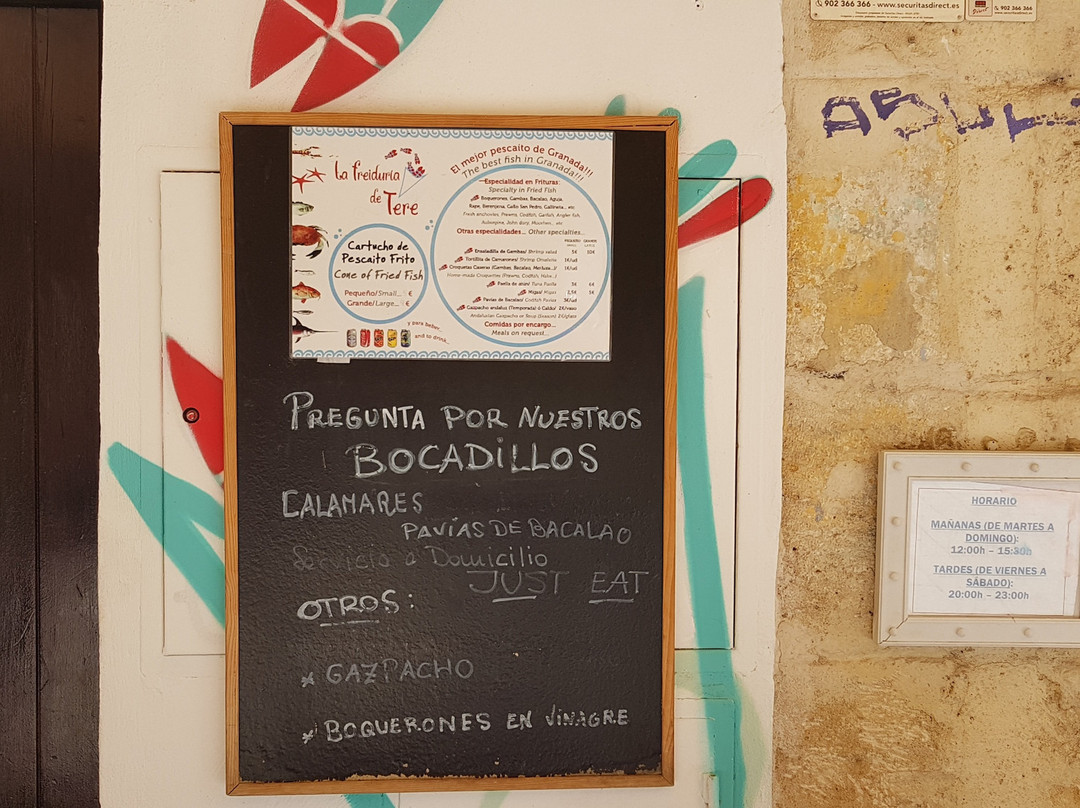 902 366 366 - www.securitasdirect.es
902 366 366
La freiduría
de Tere
El mejor pescaito de Granada!!!
The best fish in Granada!!!
Especialidad en Frituras:
Specialty in Fried Fish
Boquerones, Gambas, Bacalao, Aguja,
Rape, Berenjena, Gallo San Pedro, Gallineta... etc
Fresh anchovies, Prawns, Codfish, Garfish, Angler fish,
Aubergine, John dory,
Otras especialidades... Other specialties...
Ensaladilla de Gambas/ Shrimp salad 5€ 10€
Tortillita de Camarones/ Shrimp Omelette 1€/ud
Croquetas Caseras (Gambas, Bacalao, Merluza...)/ 1€/ud
Home-made Croquettes (Prawns, Codfish, Hake...)
Paella de atún/ Tuna Paella 3€ 6€
Migas/ Migas 2,5€ 5€
Pavías de Bacalao/ Codfish Pavias 3€/ud
Gazpacho andaluz (Temporada) ó Caldo/ 2€/vaso
Comidas por encargo...
Meals on request...
Cartucho de
Pescaito Frito
Cone of Fried Fish
Pequeño/Small... €
Grande/Large... €
y para beber...
and to drink...
PREGUNTA POR NUESTROS
BOCADILLOS
CALAMARES
PAVÍAS DE BACALAO
Servicio a Domicilio
JUST EAT
OTROS:
* GAZPACHO
* BOQUERONES EN VINAGRE
HORARIO
MAÑANAS (DE MARTES A
DOMINGO):
12:00h – 15:30h
TARDES (DE VIERNES A
SÁBADO):
20:00h – 23:00h